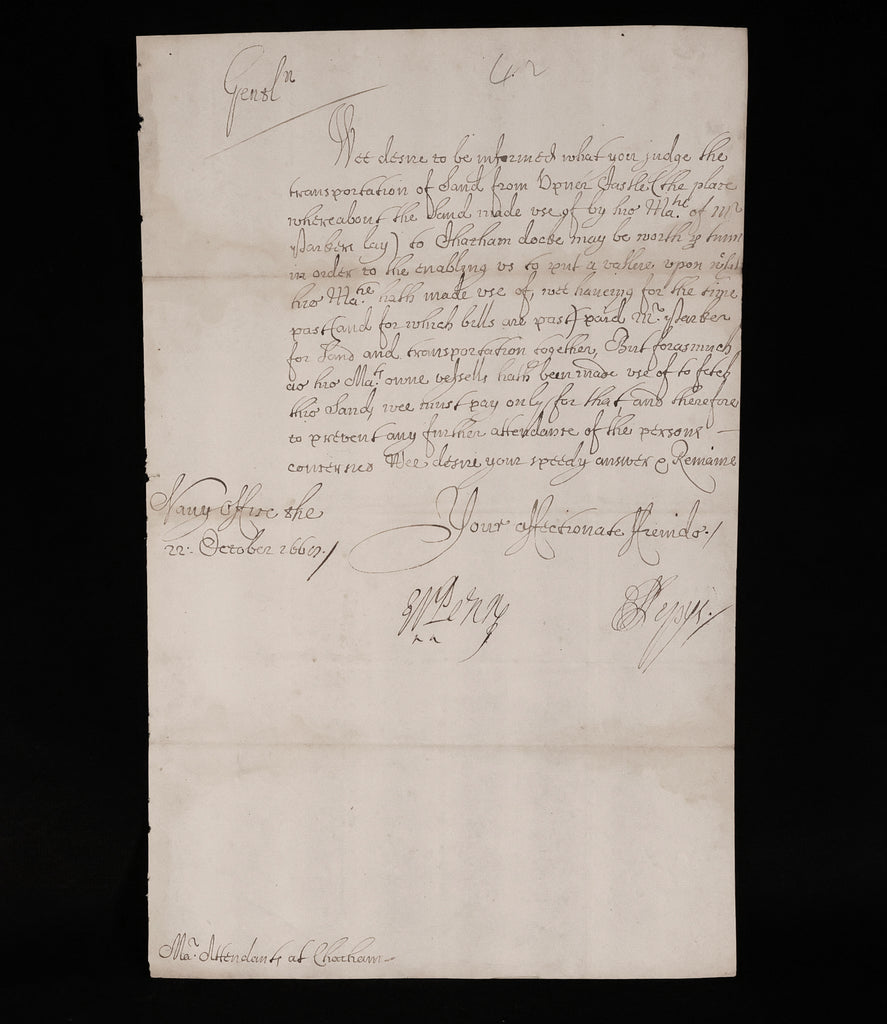 Gentlⁿ
Wee desire to be informed what you judge the
transportation of Sand from Upner Castle (the place
whereabout the Sand made use of by his Maᵗⁱᵉ of Mʳ
Barkers lay) to Chatham docke may be worth ꝑ tunn
in order to the enabling us to put a vallue upon wᶜʰ
his Maᵗⁱᵉ hath made use of, wee haveing for the time
past (and for which bills are past) paid Mʳ Barker
for Sand and transportation together, But forasmuch
as his Maᵗˢ owne vessells hath been made use of to fetch
this Sand, wee must pay only for that, and therefore
to prevent any further attendance of the persons
concerned Wee desire your speedy answer & Remaine
Navy Office the
22: October
Your affectionate Friends
WPenn
SPepys
Maʳ Attendants at Chatham